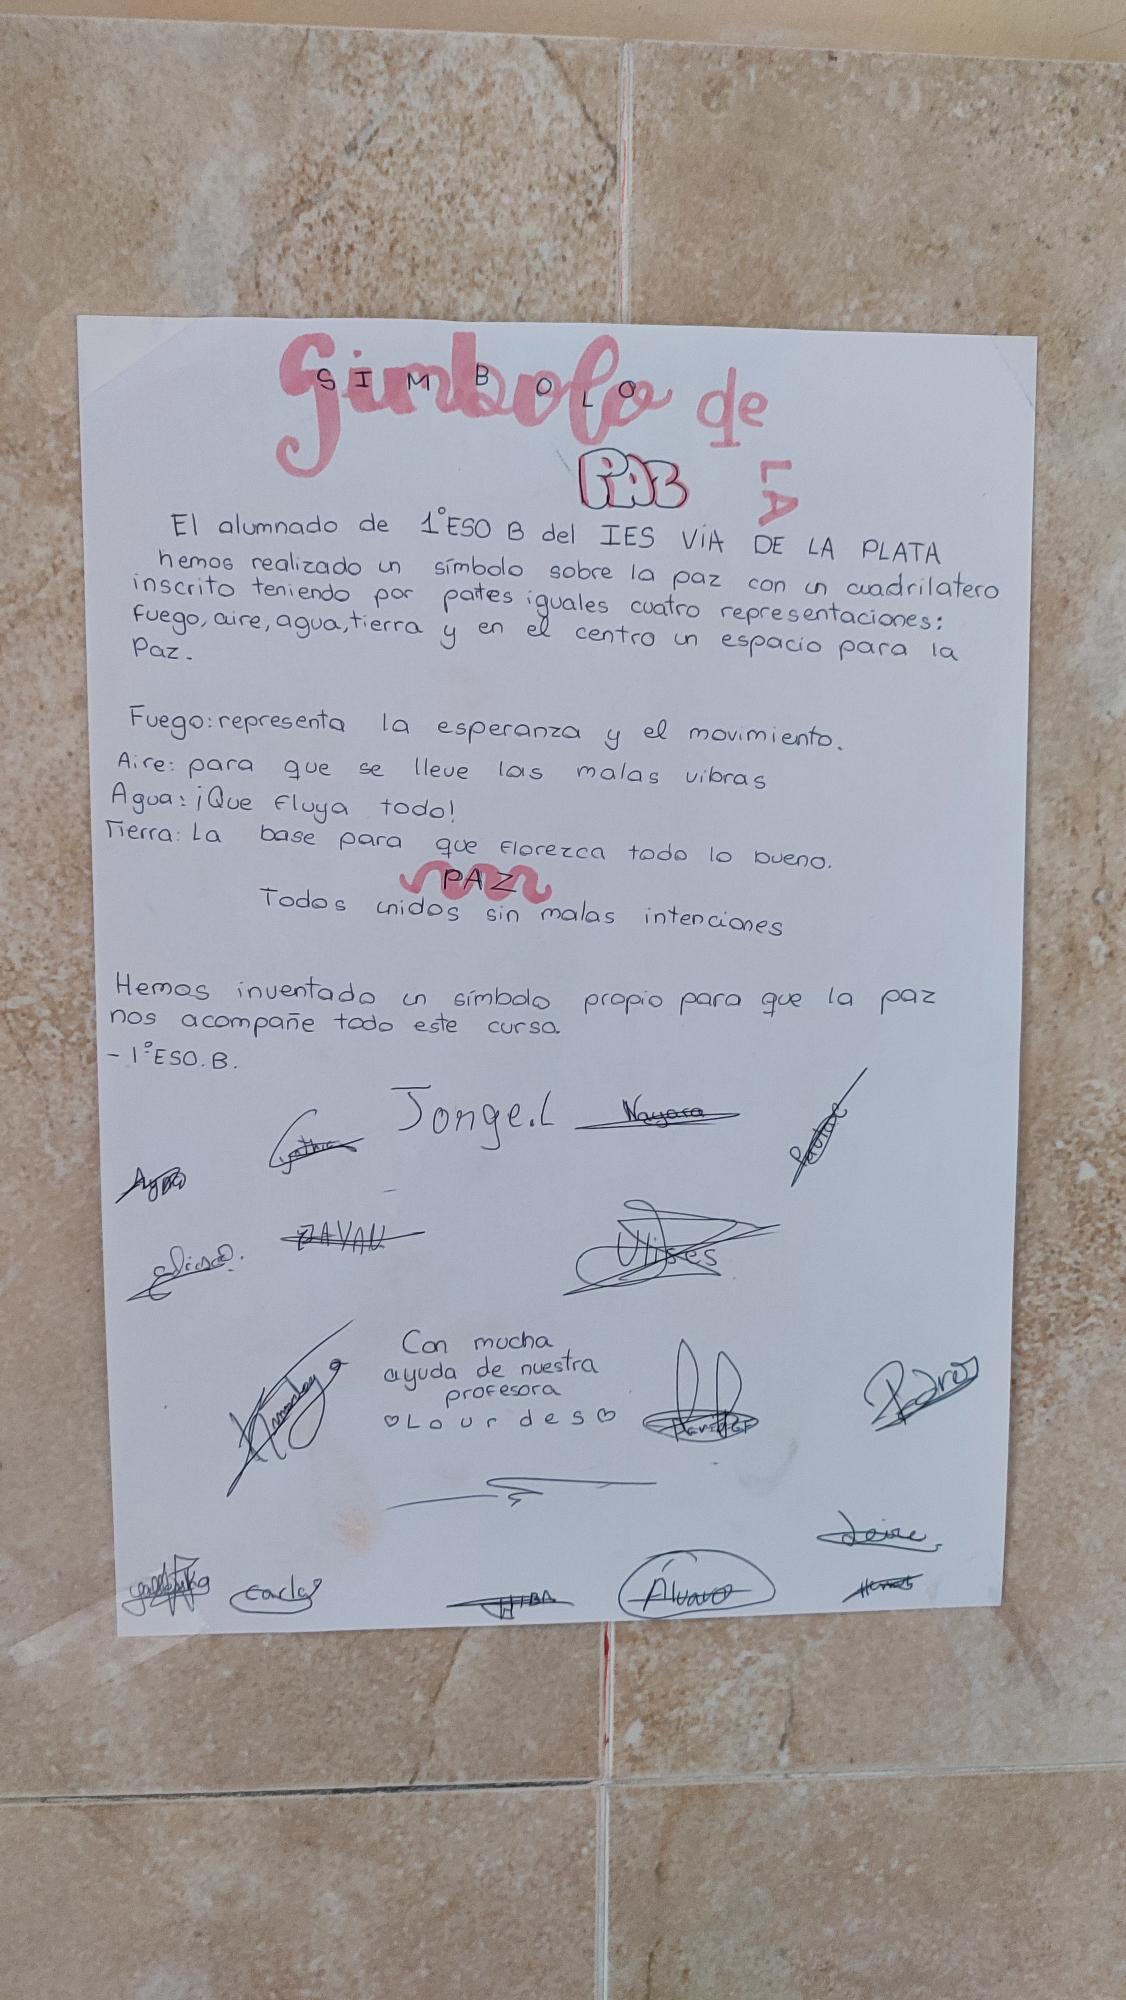 Símbolo de
SIMBOLO
LA
PAZ
El alumnado de 1ºESO B del IES VíA DE LA PLATA
hemos realizado un símbolo sobre la paz con un cuadrilatero
inscrito teniendo por pates iguales cuatro representaciones:
Fuego, aire, agua, tierra y en el centro un espacio para la
Paz.
Fuego: representa la esperanza y el movimiento.
Aire: para que se lleve las malas vibras
Agua: ¡Que fluya todo!
Tierra: La base para que florezca todo lo bueno.
PAZ
Todos unidos sin malas intenciones
Hemos inventado un símbolo propio para que la paz
nos acompañe todo este curso.
- 1ºESO.B.
Jonge.L
Nayara
Cynthia
RAYAN
Ulises
Con mucha
ayuda de nuestra
profesora
♡Lourdes♡
Pedro
Leire
Carlos
HIBA
Álvaro